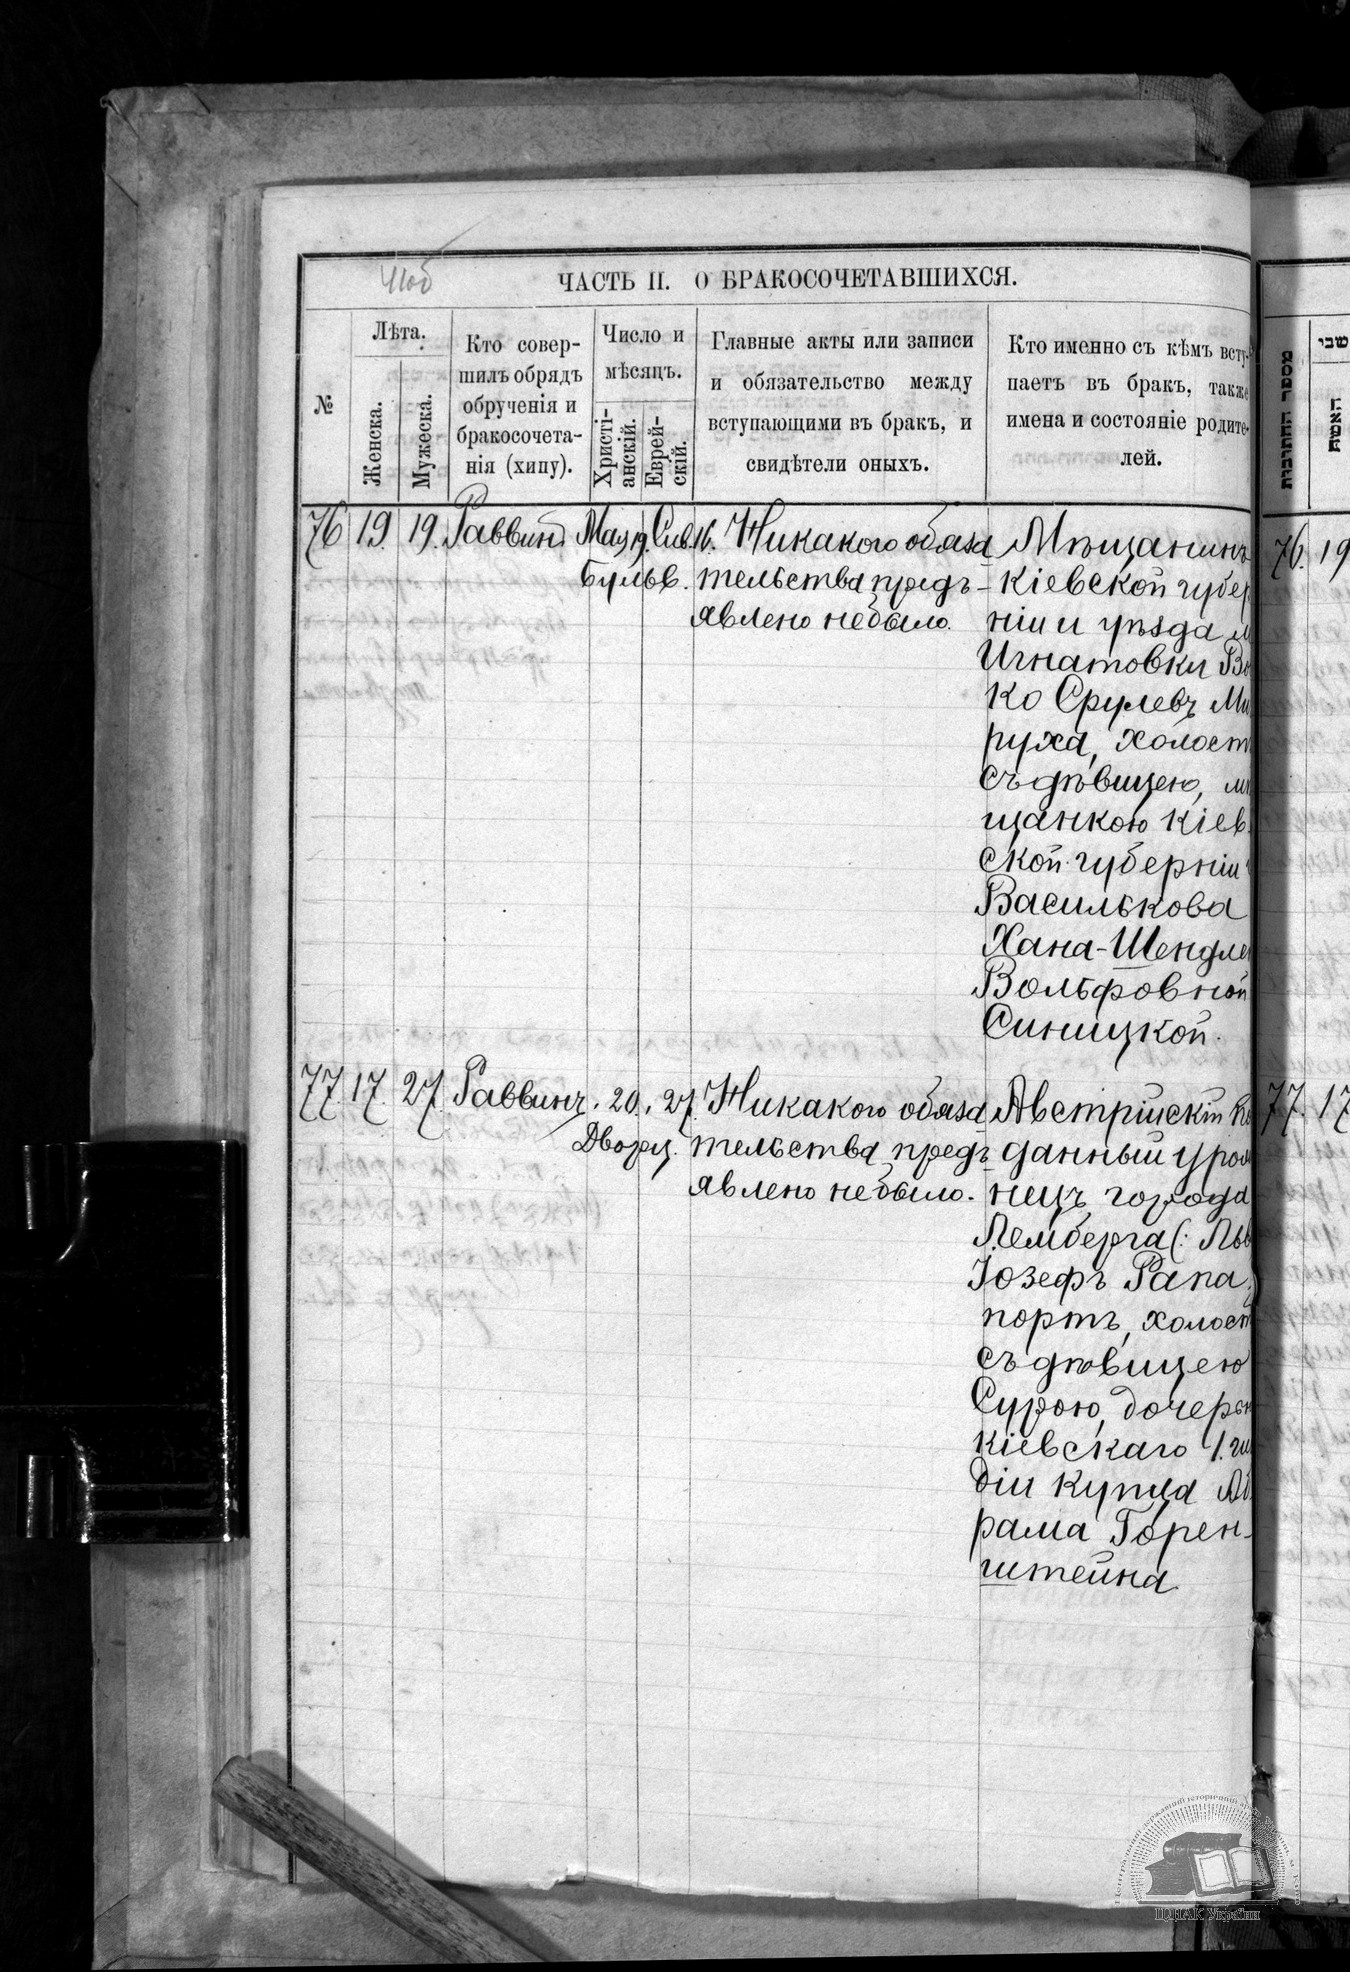 ЧАСТЬ II. О БРАКОСОЧЕТАВШИХСЯ.
№
Лѣта.
Женска.
Мужеска.
Кто совер-
шилъ обрядъ
обрученія и
бракосочета-
нія (хипу).
Число и
мѣсяцъ.
Христі-
анскій.
Еврей-
скій.
Главные акты или записи
и обязательство между
вступающими въ бракъ, и
свидѣтели оныхъ.
Кто именно съ кѣмъ всту-
паетъ въ бракъ, также
имена и состояніе родите-
лей.
76 19. 19. Раввинъ Мая 19. Сив. 16.
Бульв.
Никакого обяза
тельства предъ-
явлено небыло.
Мѣщанинъ
Кіевской губер
ніи и уѣзда м
Игнатовки
ко Срулевъ Ми
руха, холост
съ дѣвицею, мѣ
щанкою Кіев
ской губерніи
Василькова
Хана-Шендле
Вольфовной
Синицкой.
77. 17. 27. Раввинъ. 20. 27.
Дворец.
Никакого обяза
тельства предъ
явлено небыло.
Австрійскій По
данный урож
нецъ города
Лемберга (: Льв
Іозефъ Рапа
портъ, холост
съ дѣвицею
Сурою, дочерью
Кіевскаго 1. ги
діи купца Аб
рама Горен-
штейна
מספר החתונות
שני
האשה
76. 19
77. 17
ЦДІАК України